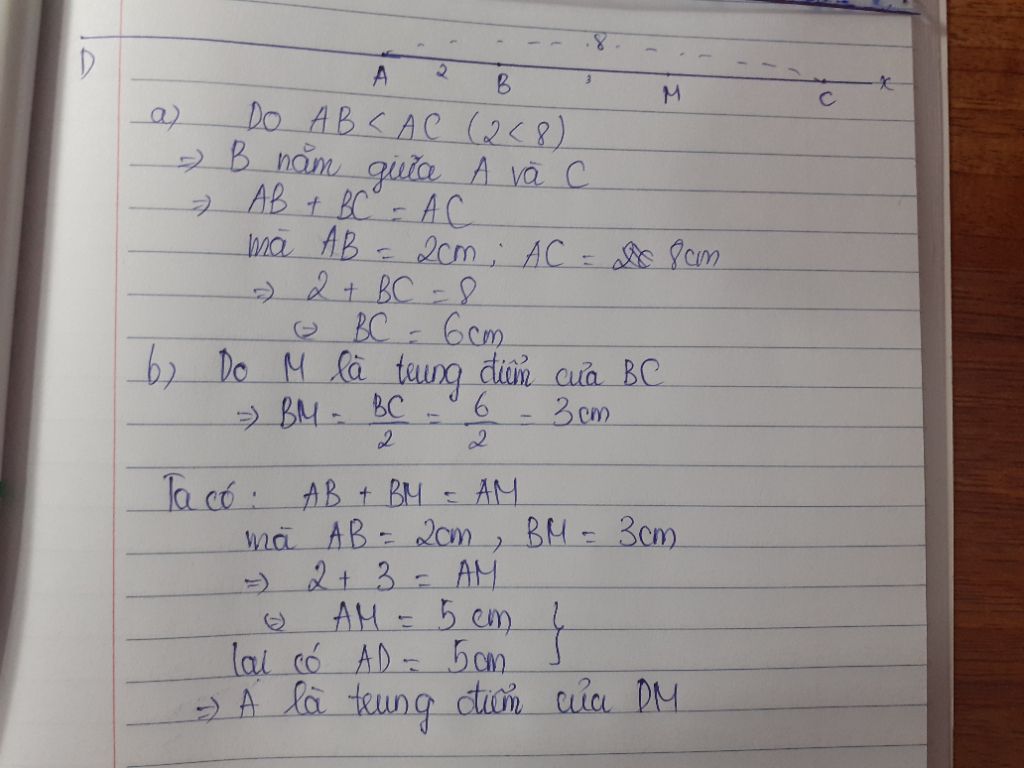 8
D A 2 B 3 M C x
a) Do AB < AC (2 < 8)
⇒ B nằm giữa A và C
⇒ AB + BC = AC
mà AB = 2cm ; AC = 8cm
⇒ 2 + BC = 8
⇔ BC = 6cm
b) Do M là trung điểm của BC
⇒ BM = BC/2 = 6/2 = 3cm
Ta có : AB + BM = AM
mà AB = 2cm , BM = 3cm
⇒ 2 + 3 = AM
⇔ AM = 5 cm }
lại có AD = 5cm
⇒ A là trung điểm của DM